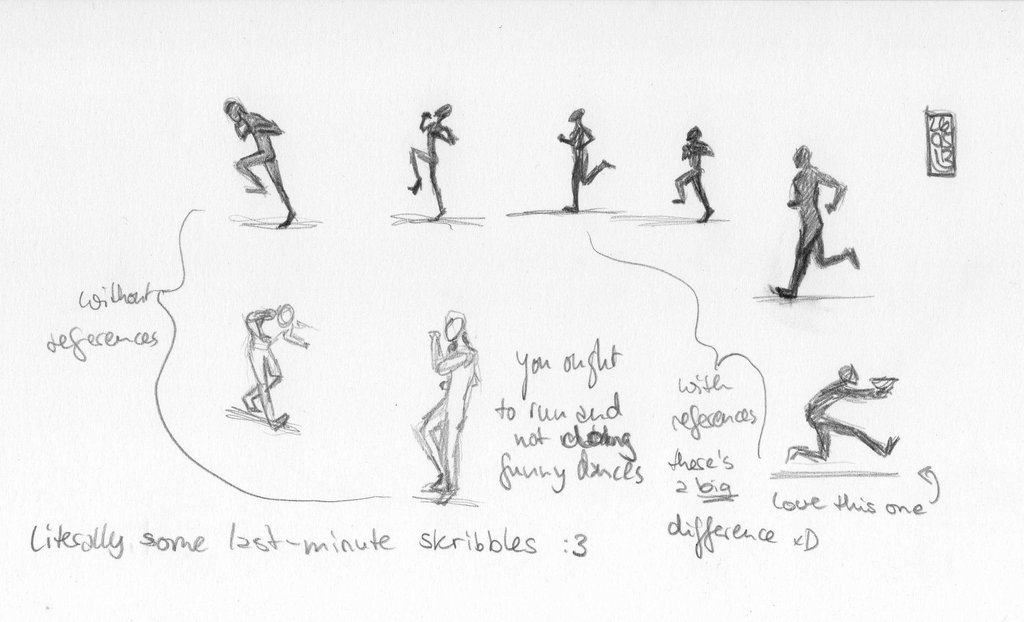 without
references
you ought
to run and
not doing
funny dances
with
references
there's
a big
difference xD
Love this one
Literally some last-minute skribbles :3